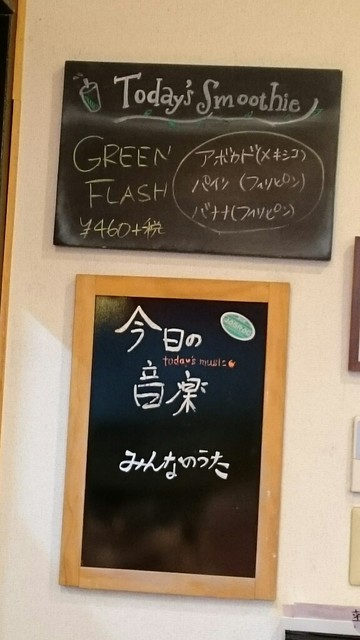 Today's Smoothie
GREEN
FLASH
¥460+税
アボカド(メキシコ)
パイン(フィリピン)
バナナ(フィリピン)
今日の
today's music
音楽
みんなのうた